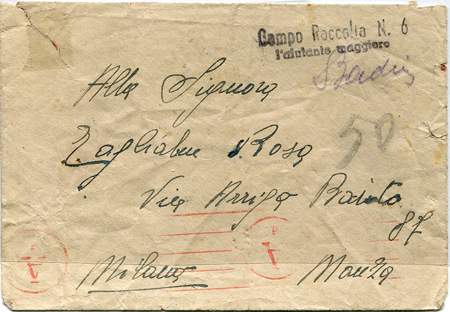 Campo Raccolta N. 6
l'aiutante maggiore
50
Alla Signora
Tagliabue Rosa
Via Arrigo Boito
87
Milano Monza